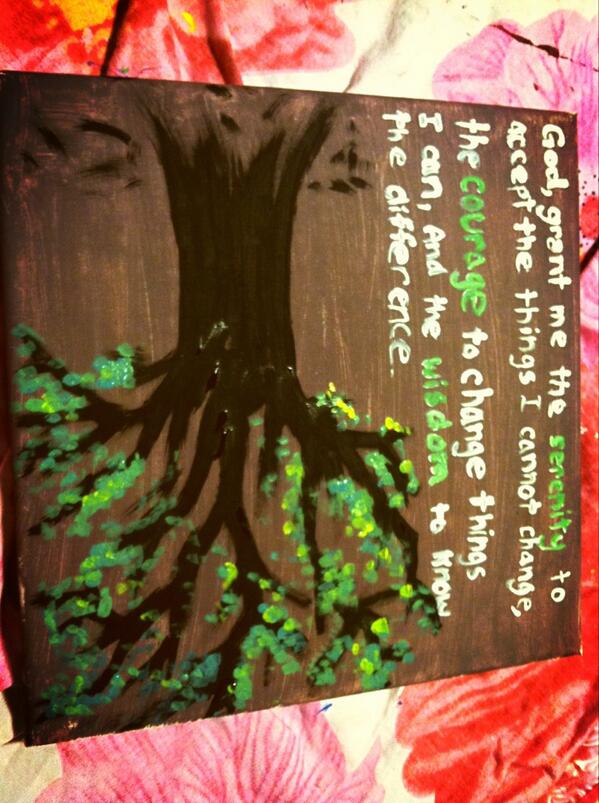 God, grant me the serenity to
accept the things I cannot change,
the courage to change things
I can, And the wisdom to know
the difference.